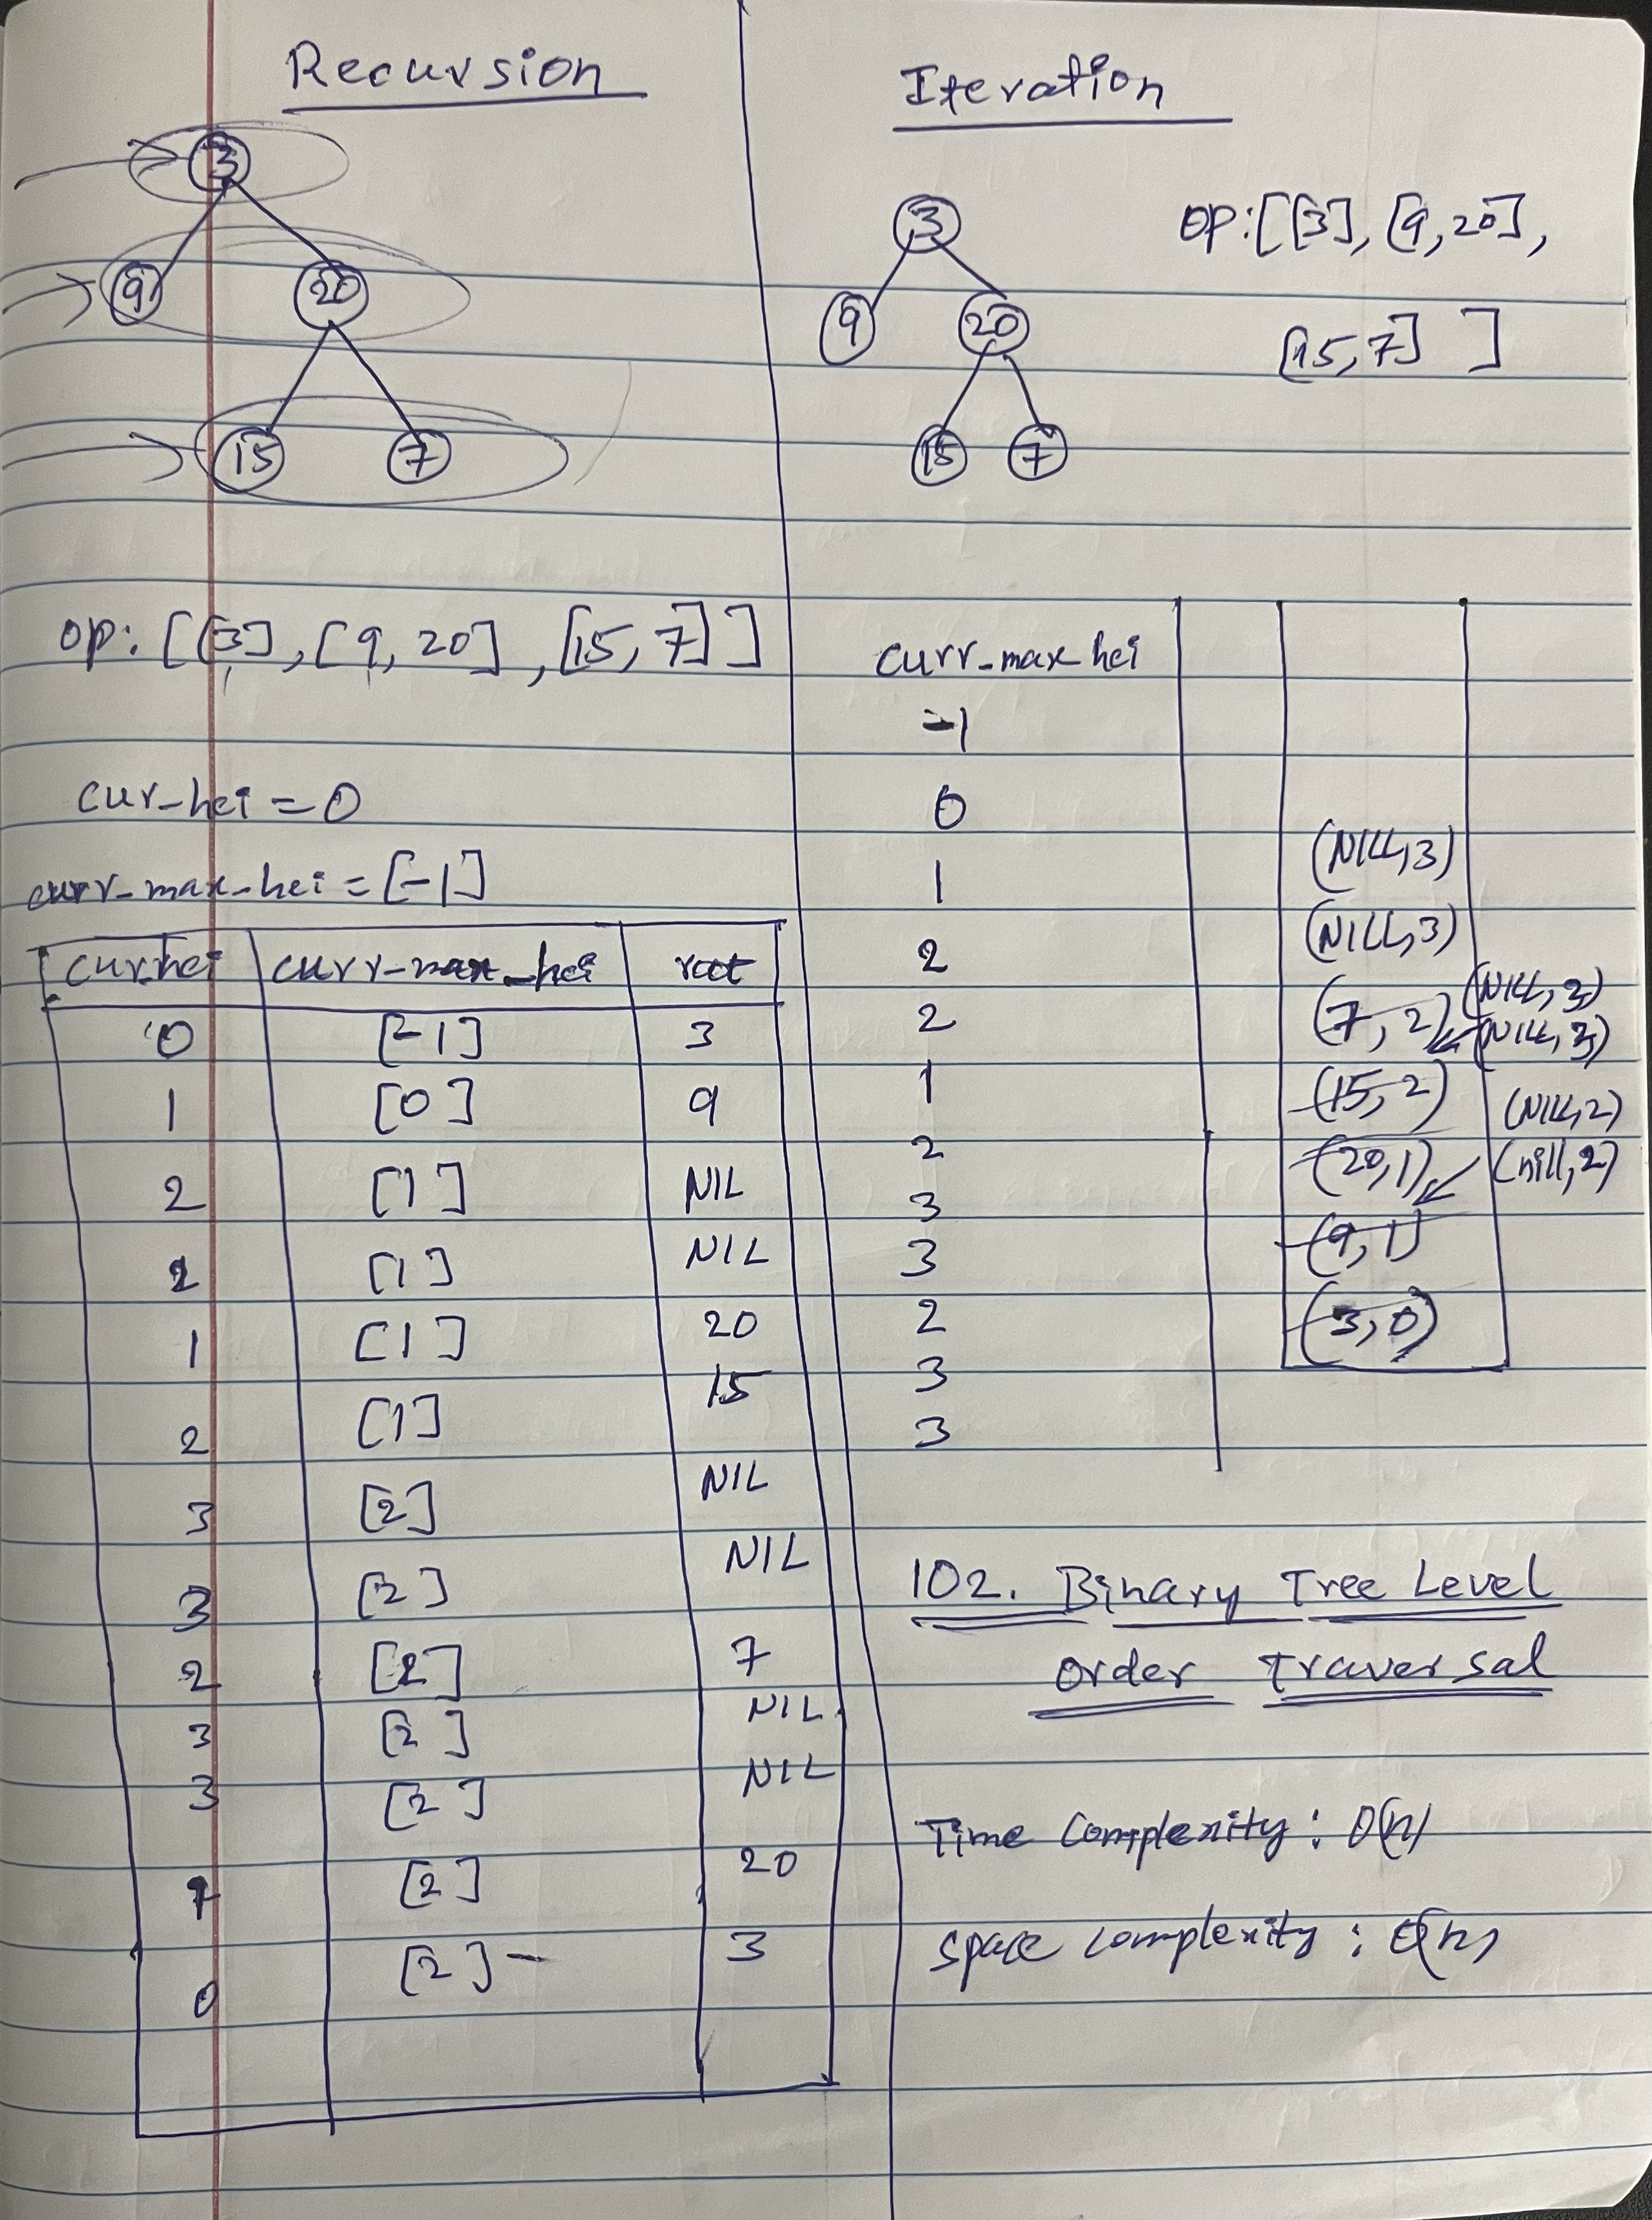 Recursion
3
9 20
15 7
op: [[3], [9, 20], [15, 7]]
cur_hei = 0
curr_max_hei = [-1]
cur.hei curr-max_hei root
0 [-1] 3
1 [0] 9
2 [1] NIL
2 [1] NIL
1 [1] 20
2 [1] 15
3 [2] NIL
3 [2] NIL
2 [2] 7
3 [2] NIL
3 [2] NIL
1 [2] 20
0 [2] - 3
Iteration
3
9 20
15 7
op: [[3], [9, 20],
[15, 7] ]
curr_max_hei
-1
0
1
2
2
1
2
3
3
2
3
3
(NILL, 3)
(NILL, 3)
(7, 2) (NILL, 3)
(NILL, 3)
(15, 2) (NILL, 2)
(20, 1) (nill, 2)
(9, 1)
(3, 0)
102. Binary Tree Level
Order Traversal
Time Complexity : O(n)
Space Complexity : O(n)